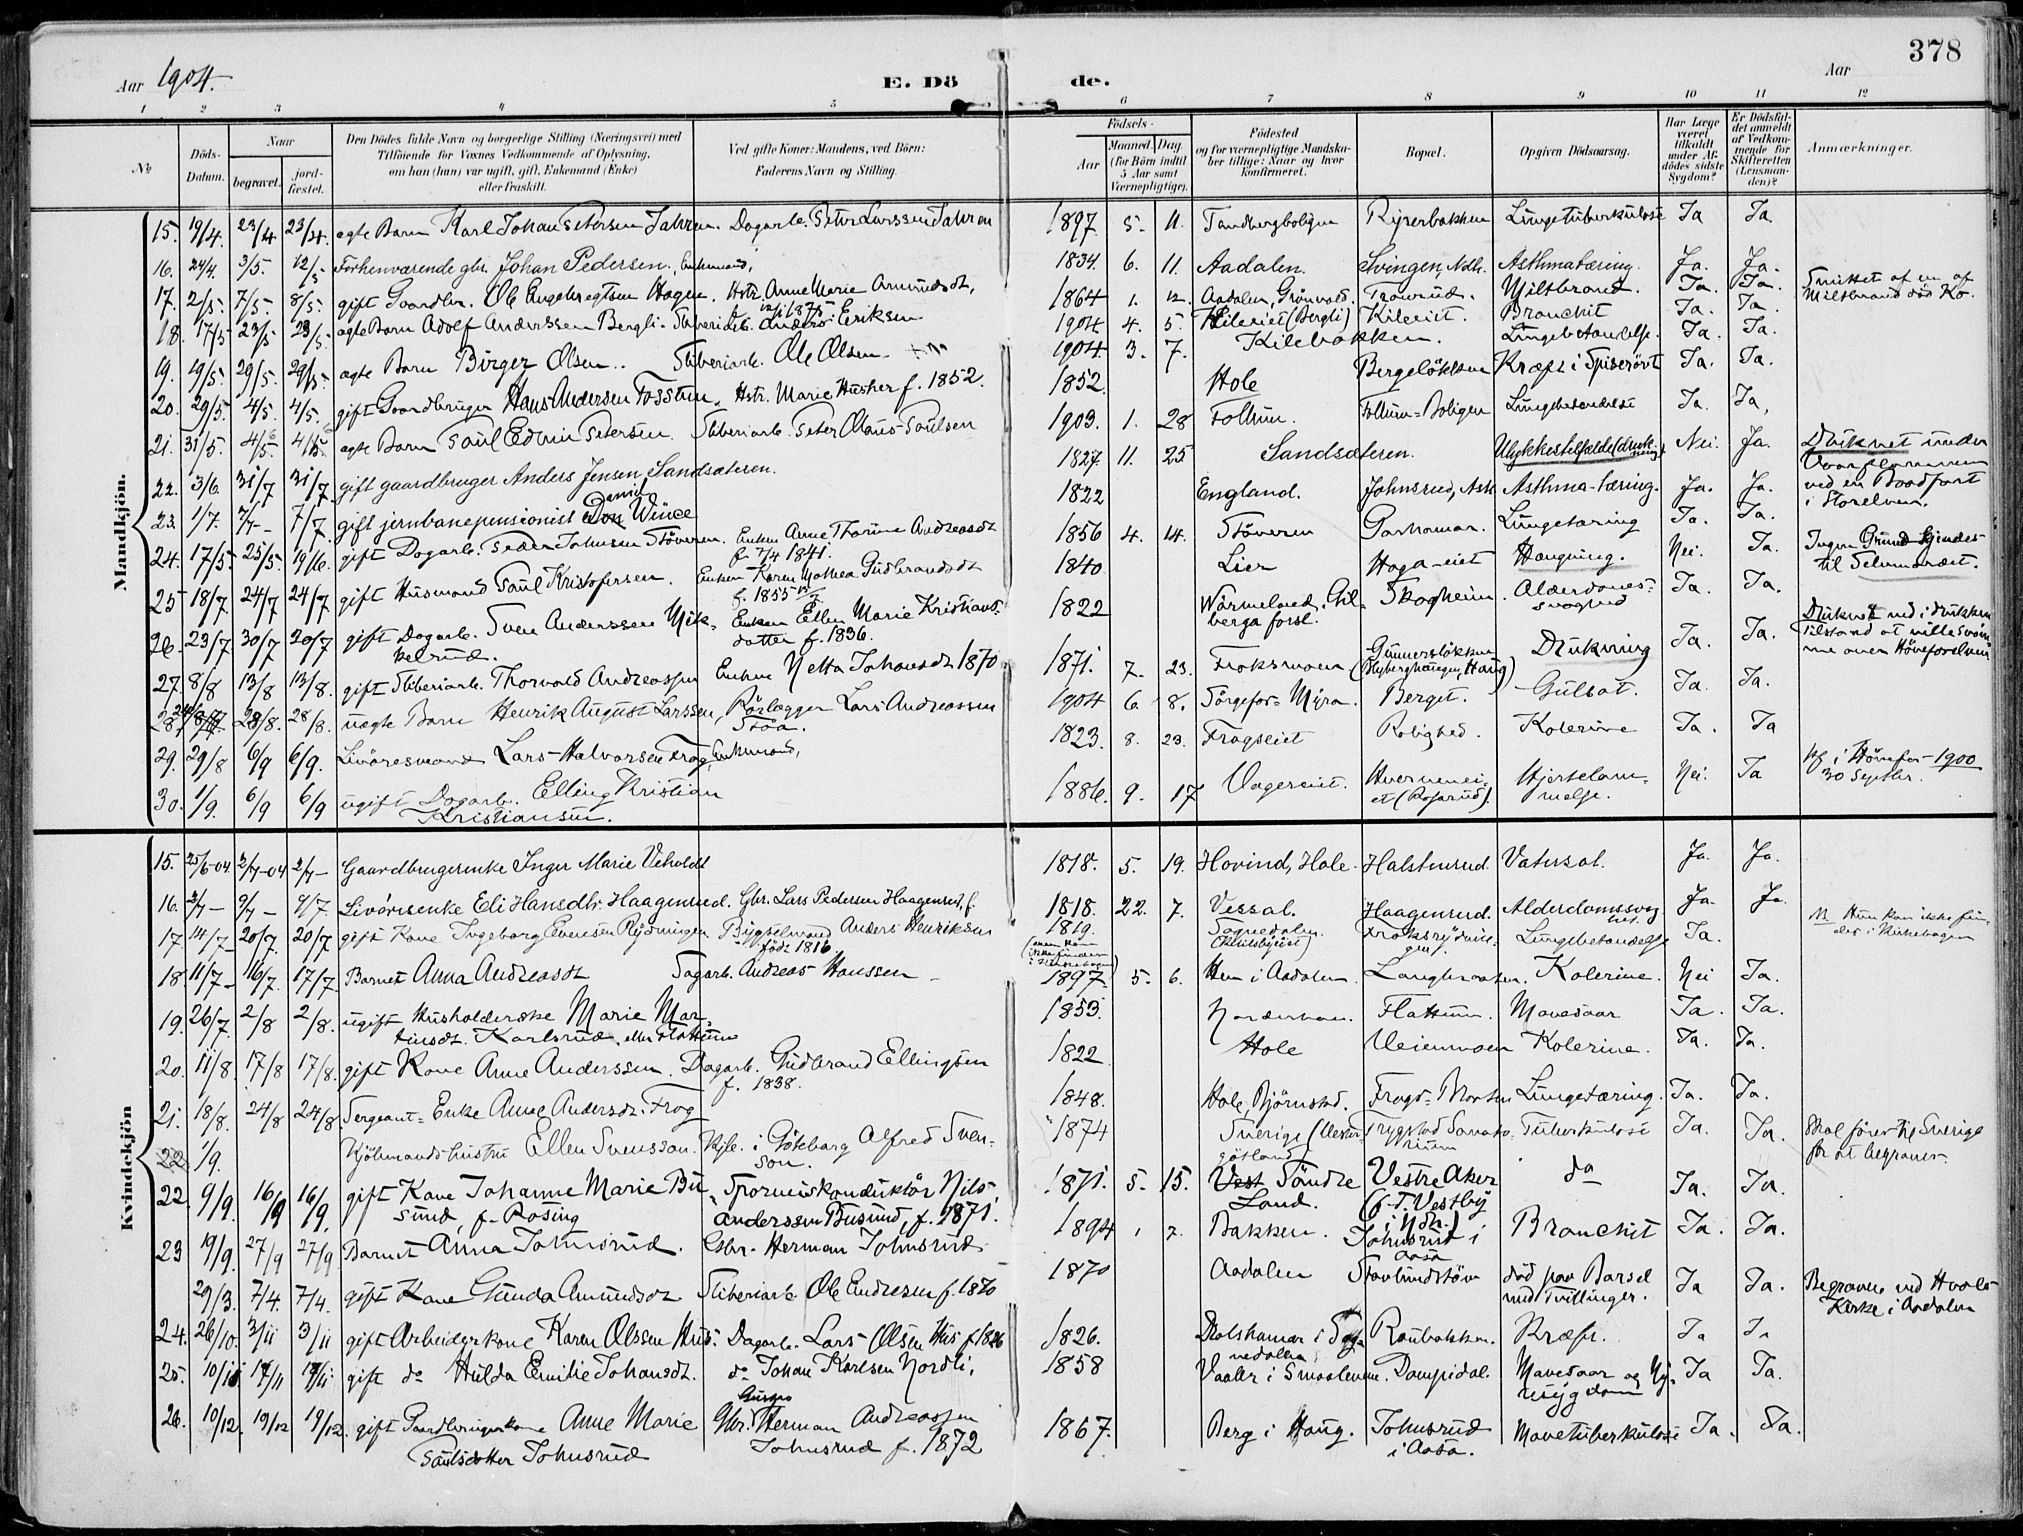 378
Aar 1904.
E. Döde.
Aar
1 2 3 4 5 6 7 8 9 10 11 12
No
Döds-Datum.
Naar
begravet.
jordfæstet.
Den Dödes fulde Navn og borgerlige Stilling (Næringsvei) med
Tilföiende for Voxnes Vedkommende af Oplysning,
om han (hun) var ugift, gift, Enkemand (Enke)
eller fraskilt.
Ved gifte Koner: Mandens, ved Börn:
Faderens Navn og Stilling.
Födsels-
Aar
Maaned. Dag.
(for Börn indtil
5 Aar samt
Værnepligtige).
Födested
og for værnepligtige Mandska-
ber tillige: Naar og hvor
konfirmeret.
Bopæl.
Opgiven Dödsaarsag.
Har Læge
været
tilkaldt
under Af-
dödes sidste
Sygdom?
Er Dödsfal-
det anmeldt
af Vedkom-
mende for
Skifteretten
(Lensman-
den)?
Anmærkninger.
Mandkjön.
15. 19/4. 23/4 23/4. ægte Barn Karl Johan Petersen Jahren. Dagarb. Peter Larssen Jahren 1897 5. 11. Tandbergboligen Ryserbakken Lungetuberkulose Ja Ja
16. 24/4. 3/5. 12/5 Forhenværende gbr. Johan Pedersen, Enkemand, 1834. 6. 11. Aadalen. Svingen, Ndh. Asthmatæring. Ja. Ja.
17. 2/5. 7/5. 8/5. gift Gaardbr. Ole Engebregtsen Hagen. Hstr. Anne Marie Amundsdt, 1864 1. 12. Aadalen, Grönvold. Miltbrand. Ja. Ja. Smittet af en af
Miltbrand död Ko.
18. 17/5 23/5 23/5. ægte Barn Adolf Anderssen Bergli. Sliberiarb. Anders Eriksen 1904 4. 5. Kileeiet (Bergli) Kileeiet. Bronchit Ja. Ja.
19. 19/5 29/5. 29/5. ægte Barn Birger Olsen.. Sliberiarb. Ole Olsen 1904. 3. 7. Kilebakken. Lungebetændelse. Ja. Ja.
20. 29/5. 4/5. 4/5. gift Gaardbruger Hans Andersen Fossum. Hstr. Marie Husher f. 1852. 1852. Hole Bergelökken Kræft i Spiserört Ja. Ja.
21. 31/5. 4/5. ægte Barn Paul Edvin Petersen. Sliberiarb. Peter Olaus Paulsen 1903. 1. 28 Follum. Follum-Boligen Lungebetændelse Ja. Ja,
22. 3/6. 31/7 31/7. gift gaardbruger Anders Jensen Sandsæteren. 1827. 11. 25 Sandsæteren. Ulykkestilfælde (drukning) Nei. Ja. Druknet under
Vaarflommen
ved en Baadfart
i Storelven.
23. 1/7. 7/7- 7/7. gift jernbanepensionist Daniel Wince 1822 England. Johnsrud, Ask Asthma-tæring. Ja. Ja.
24. 17/5. 25/5. 19/6. gift Dagarb. Peder Johnsen Stöveren. Enken Anne Thorine Andreasdt
f. 7/4 1841. 1856 4. 14. Stöveren Lungetæring Ja. Ja.
25 18/7. 24/7 24/7 gift Husmand Paul Kristofersen. Enken Karen Mathea Gudbrandsdt
f. 1855 1840 Lier Haga-eiet Hængning. Nei. Ja. Ingen Grund kjendes
til Selvmordet.
26. 23/7 30/7 20/7 gift Dagarb. Sven Anderssen Mik-
kelrud. Enken Ellen Marie Kristians-
datter f. 1836. 1822 Wärmeland, Gil-
berga forsl. Skogheim. Alderdoms-
svaghed Ja. Ja.
27. 8/8 13/8 13/8. gift Sliberiarb. Thorvald Andreassen Enken Netta Johansdt 1870 1871. 7. 23. Froksmoen Gunnerslökken
Drukning Ja. Ja. Druknet ved i drukken
Tilstand at ville svöm-
me over Hönefoselven
28. 28/8. 28/8. uægte Barn Henrik August Larssen, Rörlægger Lars Andreassen
Stöa. 1904 6. 8. Jörgefos-Myra. Berget. Gulsot. Ja. Ja.
29. 29/8 6/9 6/9. Livöresmand Lars Halvorsen Frog, Enkemand, 1823. 8. 23. Frogseiet Rolighed. Kolerine Ja. Ja
30. 1/9. 6/9 6/9 ugift Dagarb. Elling Kristian
Kristiansen. 1886. 9. 17 Vagereiet. Hvervenei-
et Hjertelam-
melse. Nei. Ja Kf. i Hönefos 1900
30 Septbr.
Kvindekjön
15. 25/6-04. 2/7-04 2/7- Gaardbrugerenke Inger Marie Veholdt 1818. 5. 19. Hovind, Hole. Halstenrud. Vatersot. Ja. Ja.
16. 3/7- 9/7- 9/7. Livörsenke Eli Hansdtr. Haagenrud. Gbr. Lars Pedersen Haagenrud, f. 1818. 22. 7. Vessal. Haagenrud. Alderdomssvag
hed. Ja. Ja.
17 14/7- 20/7. 20/7 gift Kone Ingeborg Evensen Rydningen Bygselmand Anders Henriksen
född 1816. 1819. Sognedalen. Froksrydnin-
gen. Lungebetændelse Ja. N. Hun kan ikke fin-
des i Kirkebogen
18 11/7- 16/7. 17/7 Barnet Anna Andreasdt Dagarb. Andreas Hanssen 1897 5. 6. Hen i Aadalen. Langbraaten. Kolerine. Nei Ja.
19. 26/7. 2/8 2/8. ugift Husholderske Marie Mar-
tinsdt. Karlsrud, eller Flattum 1853. Norderhov. Flattum. Mavesaar Ja. Ja.
20. 11/8. 17/8 17/8. gift Kone Anne Anderssen. Dagarb. Gudbrand Ellingsen
f. 1838. 1822 Hole Veienmoen Kolerine. Ja. Ja.
21. 18/8. 24/8 24/8 Sergeant-Enke Anne Andersdt. Frog 1848. Hole, Björnstad. Frogs-Braaten Lungetæring. Ja. Ja.
22. 1/9. Kjöbmandshustru Ellen Svensson. Kjb. i Göteborg Alfred Sven-
son. 1874 Sverige (Vester-
götland) Trygstad Sanato-
rium Tuberkulose Ja. Ja. Skal föres til Sverige
for at begraves.
22 9/9. 16/9 16/9. gift Kone Johanne Marie Bu-
sund, f. Rosing Sporveiskonduktör Nils
Anderssen Busund, f. 1871. 1871. 5. 15. Vest Söndre
Land. Vestre Aker
(p. T. Vestby
i Ndh.) do Ja. Ja.
23 19/9. 27/9 27/9 Barnet Anna Johnsrud. Gbr. Herman Johnsrud 1894 1 7. Bakken. Johnsrud i
Aasa Bronchit Ja. Ja.
29/3. 7/4. 7/4. gift Kone Gunda Amundsdt. Sliberiarb. Ole Endresen f. 1870 1870 Aadalen död paa Barsel
med Tvillinger. Ja Ja. Begraves ved Hvals
Kirke i Aadalen
24. 26/10. 3/11 3/11 gift Arbeiderkone Karen Olssen Hus. Dagarb. Lars Olsen Hus f. 1826 1826. i Sog-
nedalen. Raubakken. Kræft. Ja Ja
25. 10/11 17/11 17/11. gift do Hulda Emilie Johansdt. do Johan Karlsen Nordli, 1858 Vaaler i Smaalenene. Dampidal. Mavesaar og Ny-
resygdom Ja Ja.
26. 10/12. 19/12 19/12. gift Gaardbrugerkone Anne Marie
Paulsdatter Johnsrud Gbr. Herman Andreassen
Johnsrud f. 1872 1867. Berg i Haug. Johnsrud
i Aasa. Mavetuberkulose Ja. Ja.